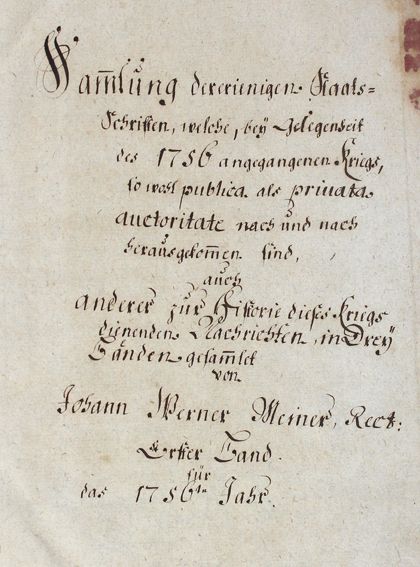 Sam̄lung dererienigen Staats=
Schrifften, welche, bey Gelegenheit
des 1756 angegangenen Kriegs,
so wohl publica als privata
auctoritate nach und nach
herausgekom̄en sind,
auch
anderer zur Historie dieses Kriegs
dienenden Nachrichten, in Drey
Bänden gesam̄let
von
Johann Werner Meiner, Rect:
Erster Band.
für
das 1756te Jahr.